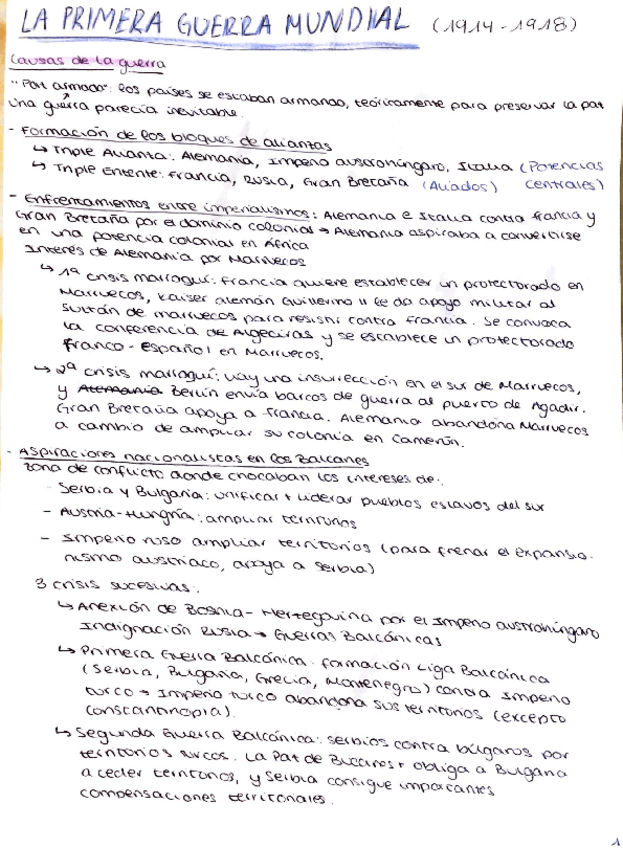 LA PRIMERA GUERRA MUNDIAL (1914-1918)
Causas de la guerra
"Paz armada": los países se estaban armando, teóricamente para preservar la paz
Una guerra parecía inevitable.
- Formación de los bloques de alianzas
↳ Triple Alianza: Alemania, Imperio austrohúngaro, Italia (Potencias
↳ Triple Entente: Francia, Rusia, Gran Bretaña (Aliados) Centrales)
- Enfrentamientos entre imperialismos: Alemania e Italia contra Francia y
Gran Bretaña por el dominio colonial → Alemania aspiraba a convertirse
en una potencia colonial en África
Interés de Alemania por Marruecos
↳ 1ª crisis marroquí: Francia quiere establecer un protectorado en
Marruecos, Kaiser alemán Guillermo II le da apoyo militar al
sultán de marruecos para resistir contra Francia. Se convoca
la conferencia de Algeciras y se establece un protectorado
franco-español en Marruecos.
↳ 2ª crisis marroquí: Hay una insurrección en el sur de Marruecos,
y Alemania Berlín envía barcos de guerra al puerto de Agadir.
Gran Bretaña apoya a Francia. Alemania abandona Marruecos
a cambio de ampliar su colonia en Camerún.
- Aspiraciones nacionalistas en los Balcanes
Zona de conflicto donde chocaban los intereses de:
- Serbia y Bulgaria: unificar + liderar pueblos eslavos del sur
- Austria-Hungría: ampliar territorios
- Imperio ruso ampliar territorios (para frenar el expansio-
nismo austriaco, apoya a Serbia)
3 crisis sucesivas:
↳ Anexión de Bosnia-Herzegovina por el Imperio austrohúngaro
Indignación Rusia → Guerras Balcánicas
↳ Primera Guerra Balcánica: formación Liga Balcánica
(Serbia, Bulgaria, Grecia, Montenegro) contra Imperio
turco → Imperio turco abandona sus territorios (excepto
Constantinopla).
↳ Segunda Guerra Balcánica: serbios contra búlgaros por
territorios turcos. La Paz de Bucarest obliga a Bulgaria
a ceder territorios, y Serbia consigue importantes
compensaciones territoriales.
1